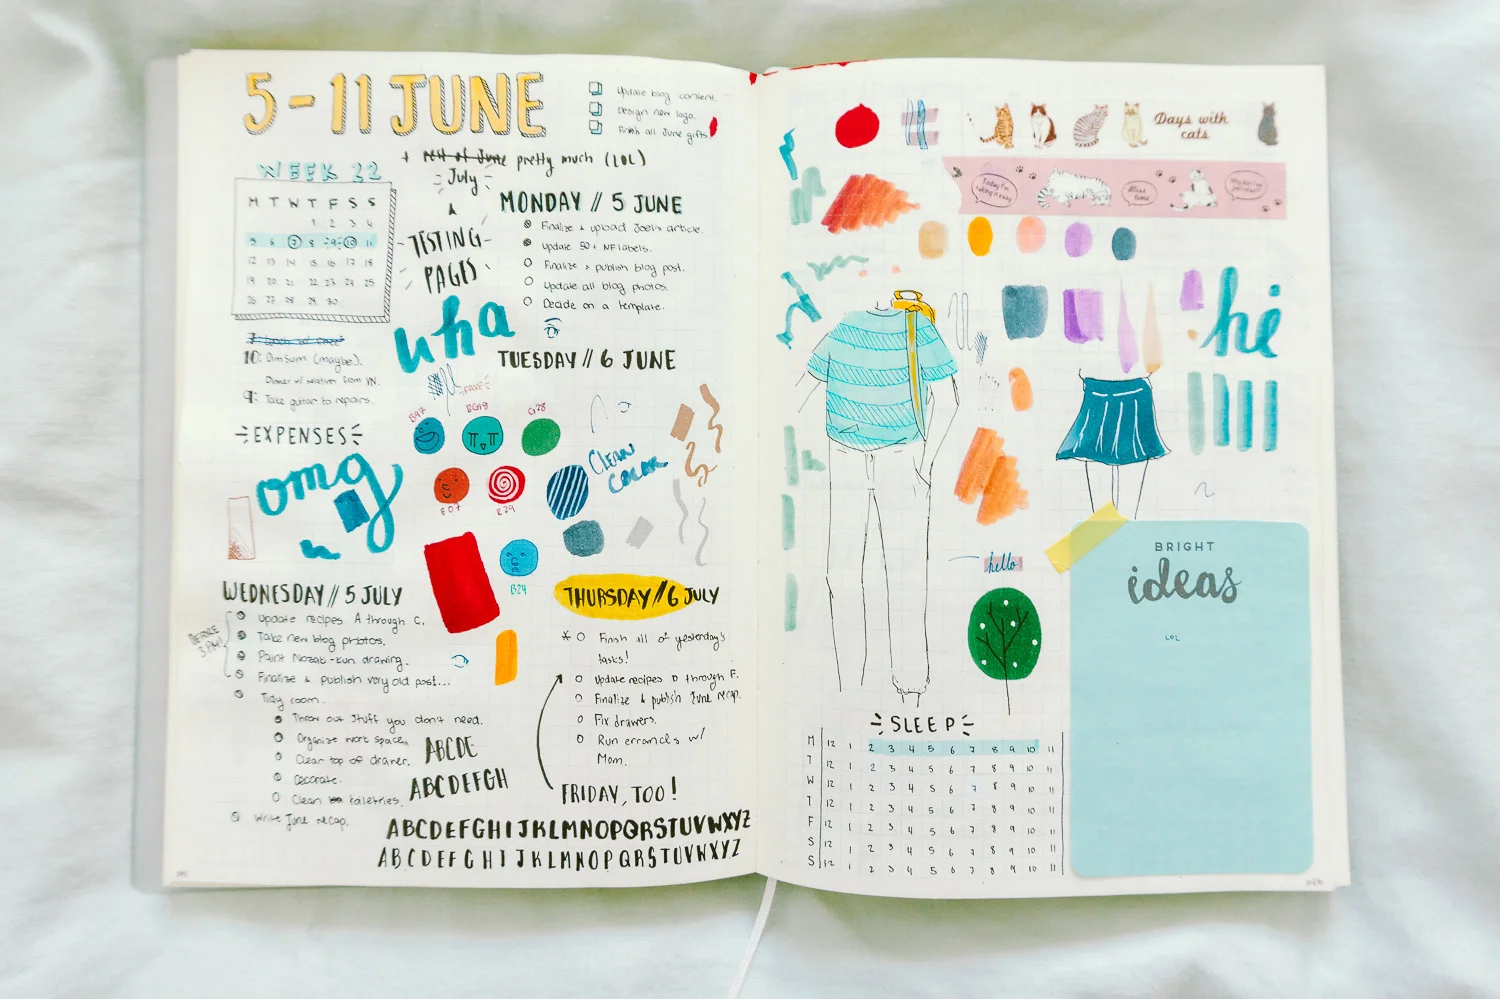 5-11 JUNE
Update blog content.
Design new logo.
Finish all June gifts
+ rest of June pretty much (LOL)
July
WEEK 22
M T W T F S S
1 2 3 4
5 6 7 8 9 10 11
12 13 14 15 16 17 18
19 20 21 22 23 24 25
26 27 28 29 30
TESTING
PAGES
MONDAY // 5 JUNE
Finalize & upload Joel's article.
Update 50+ NF labels.
Finalize & publish blog post.
Update all blog photos.
Decide on a template.
uha
10: DimSum (maybe).
Dinner w/ relatives from VN.
9: Take guitar to repairs.
TUESDAY // 6 JUNE
FAVE
EXPENSES
B97
BG18
G28
omg
CLEAN
COLOR
E07
R29
B24
WEDNESDAY // 5 JULY
BEFORE
3 PM!
Update recipes A through C.
Take new blog photos.
Paint Nozaki-kun drawing.
Finalize & publish very old post...
Tidy room.
Throw out stuff you don't need.
Organize work space.
Clear top of drawer.
Decorate.
Clean toiletries.
Write June recap.
ABCDE
ABCDEFGH
THURSDAY // 6 JULY
* Finish all of yesterday's
tasks!
Update recipes D through F.
Finalize & publish June recap.
Fix drawers.
Run errands w/
Mom.
FRIDAY, TOO!
ABCDEFGHIJKLMNOPQRSTUVWXYZ
ABCDEFGHIJKLMNOPQRSTUVWXYZ
Days with
cats
Today I'm
taking it easy
Bliss
time
hi
hello
BRIGHT
ideas
LOL
SLEEP
M 12 1 2 3 4 5 6 7 8 9 10 11
T 12 1 2 3 4 5 6 7 8 9 10 11
W 12 1 2 3 4 5 6 7 8 9 10 11
T 12 1 2 3 4 5 6 7 8 9 10 11
F 12 1 2 3 4 5 6 7 8 9 10 11
S 12 1 2 3 4 5 6 7 8 9 10 11
S 12 1 2 3 4 5 6 7 8 9 10 11